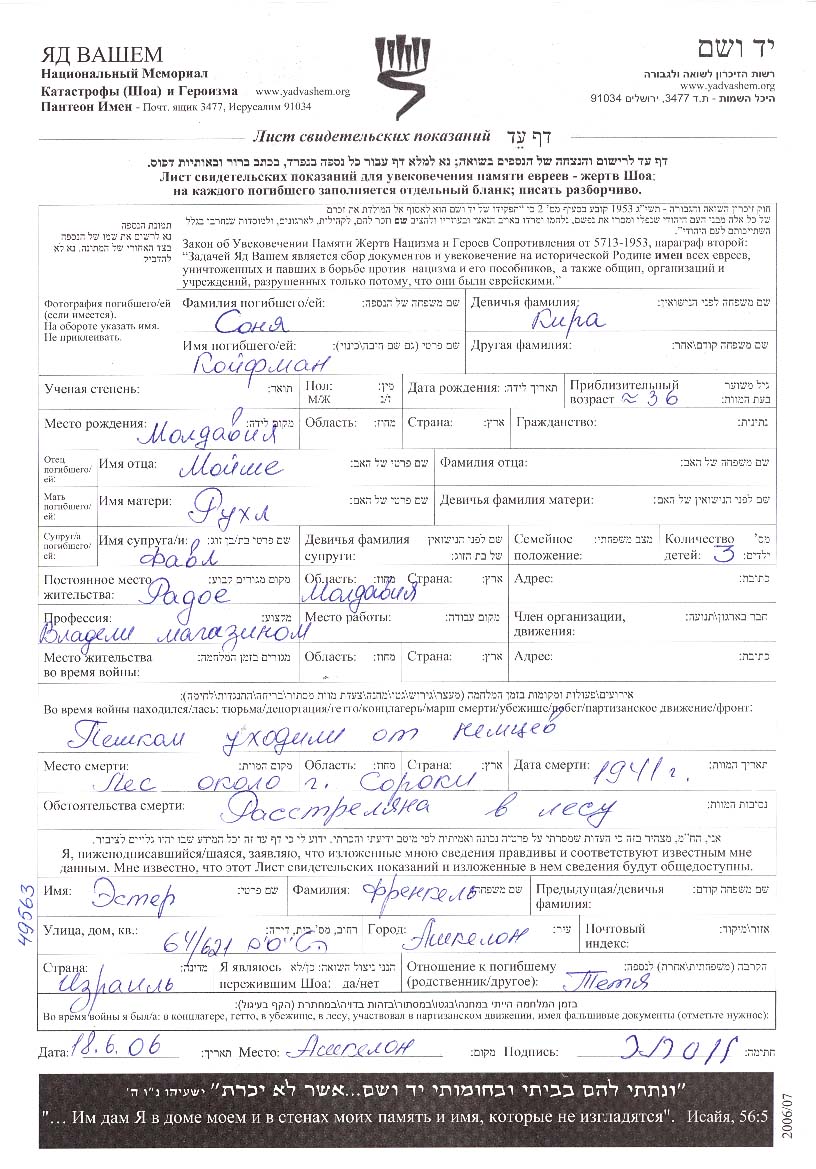 ЯД ВАШЕМ
Национальный Мемориал
Катастрофы (Шоа) и Героизма www.yadvashem.org
Пантеон Имен - Почт. ящик 3477, Иерусалим 91034
יד ושם
רשות הזיכרון לשואה ולגבורה
www.yadvashem.org
היכל השמות - ת.ד 3477, ירושלים 91034
Лист свидетельских показаний דף עֵד
דף עד לרישום והנצחה של הנספים בשואה; נא למלא דף עבור כל נספה בנפרד, בכתב ברור ובאותיות דפוס.
Лист свидетельских показаний для увековечения памяти евреев - жертв Шоа;
на каждого погибшего заполняется отдельный бланк; писать разборчиво.
חוק זיכרון השואה והגבורה - תשי"ג 1953 קובע בסעיף מס' 2 כי "תפקידו של יד ושם הוא לאסוף אל המולדת את זכרם
של כל אלה מבני העם היהודי שנפלו ומסרו את נפשם, נלחמו ומרדו באויב הנאצי ובעוזריו ולהציב שם וזכר להם, לקהילות, לארגונים, ולמוסדות שנחרבו בגלל
השתייכותם לעם היהודי".
Закон об Увековечении Памяти Жертв Нацизма и Героев Сопротивления от 5713-1953, параграф второй:
"Задачей Яд Вашем является сбор документов и увековечение на исторической Родине имен всех евреев,
уничтоженных и павших в борьбе против нацизма и его пособников, а также общин, организаций и
учреждений, разрушенных только потому, что они были еврейскими."
תמונת הנספה
נא לרשום את שמו של הנספה
בצד האחורי של התמונה, נא לא
להדביק
Фотография погибшего/ей
(если имеется).
На обороте указать имя.
Не приклеивать.
Фамилия погибшего/ей: שם משפחה של הנספה: Соня
Девичья фамилия: שם משפחה לפני הנישואין: Кира
Имя погибшего/ей: שם פרטי (גם שם חיבה\כינוי): Койфман
Другая фамилия: שם משפחה קודם\אחר:
Ученая степень: תואר:
Пол: מין:
М/Ж ז/נ
Дата рождения: תאריך לידה:
Приблизительный возраст ≈ 36 גיל משוער בעת המוות:
Место рождения: מקום לידה: Молдавия
Область: מחוז: Страна: ארץ: Гражданство: נתינות:
Отец погибшего/ей: Имя отца: Мойше שם פרטי של האב: Фамилия отца: שם משפחה של האב:
Мать погибшего/ей: Имя матери: Рухл שם פרטי של האם: Девичья фамилия матери: שם לפני הנישואין של האם:
Супруг/а погибшего/ей: Имя супруга/и: שם פרטי בת/בן זוג: Фавл
Девичья фамилия супруги: שם לפני הנישואין של בת הזוג:
Семейное положение: מצב משפחתי:
Количество детей: 3 מס' ילדים:
Постоянное место жительства: מקום מגורים קבוע: Радое
Область: מחוז: Страна: ארץ: Молдавия
Адрес: כתובת:
Профессия: מקצוע: Владели магазином
Место работы: מקום עבודה:
Член организации, движения: חבר בארגון\תנועה:
Место жительства во время войны: מגורים בזמן המלחמה:
Область: מחוז: Страна: ארץ: Адрес: כתובת:
אירועים\פעולות ומקומות בזמן המלחמה (מעצר\גירוש\גטו\מחנה\צעדת מוות\מסתור\בריחה\התנגדות\לחימה):
Во время войны находился/лась: тюрьма/депортация/гетто/концлагерь/марш смерти/убежище/побег/партизанское движение/фронт:
Пешком уходили от немцев
Место смерти: מקום המוות: Область: מחוז: Страна: ארץ: Лес около г. Сороки
Дата смерти: 1941 г. תאריך המוות:
Обстоятельства смерти: Расстреляна в лесу נסיבות המוות:
אני, החי"מ, מצהיר בזה כי העדות שמסרתי על פרטיה נכונה ואמיתית לפי מיטב ידיעתי והכרתי. ידוע לי כי דף עד זה וכל המידע שבו יהיו גלויים לציבור.
Я, нижеподписавшийся/шаяся, заявляю, что изложенные мною сведения правдивы и соответствуют известным мне
данным. Мне известно, что этот Лист свидетельских показаний и изложенные в нем сведения будут общедоступны.
Имя: Эстер שם פרטי: Фамилия: Френкель שם משפחה: Предыдущая/девичья фамилия: שם משפחה קודם:
Улица, дом, кв.: רחוב, מס' בית, דירה: 64/621
Город: עיר: Ашкелон
Почтовый индекс: אזור\מיקוד:
Страна: מדינה: Израиль
Я являюсь пережившим Шоа: да/нет הנני ניצול השואה: כן/לא
Отношение к погибшему (родственник/другое): Тетя הקרבה (משפחתית\אחרת) לנספה:
בזמן המלחמה הייתי במחנה\בגטו\במסתור\בזהות בדויה\במחתרת (הקף בעיגול):
Во время войны я был/а: в концлагере, гетто, в убежище, в лесу, участвовал в партизанском движении, имел фальшивые документы (отметьте нужное):
Дата: 18.6.06 תאריך: Место: Ашкелон מקום: Подпись: חתימה:
"ונתתי להם בביתי ובחומותי יד ושם...אשר לא יכרת" ישעיהו נ"ו ה'
"... Им дам Я в доме моем и в стенах моих память и имя, которые не изгладятся". Исайя, 56:5
49563
2006/07